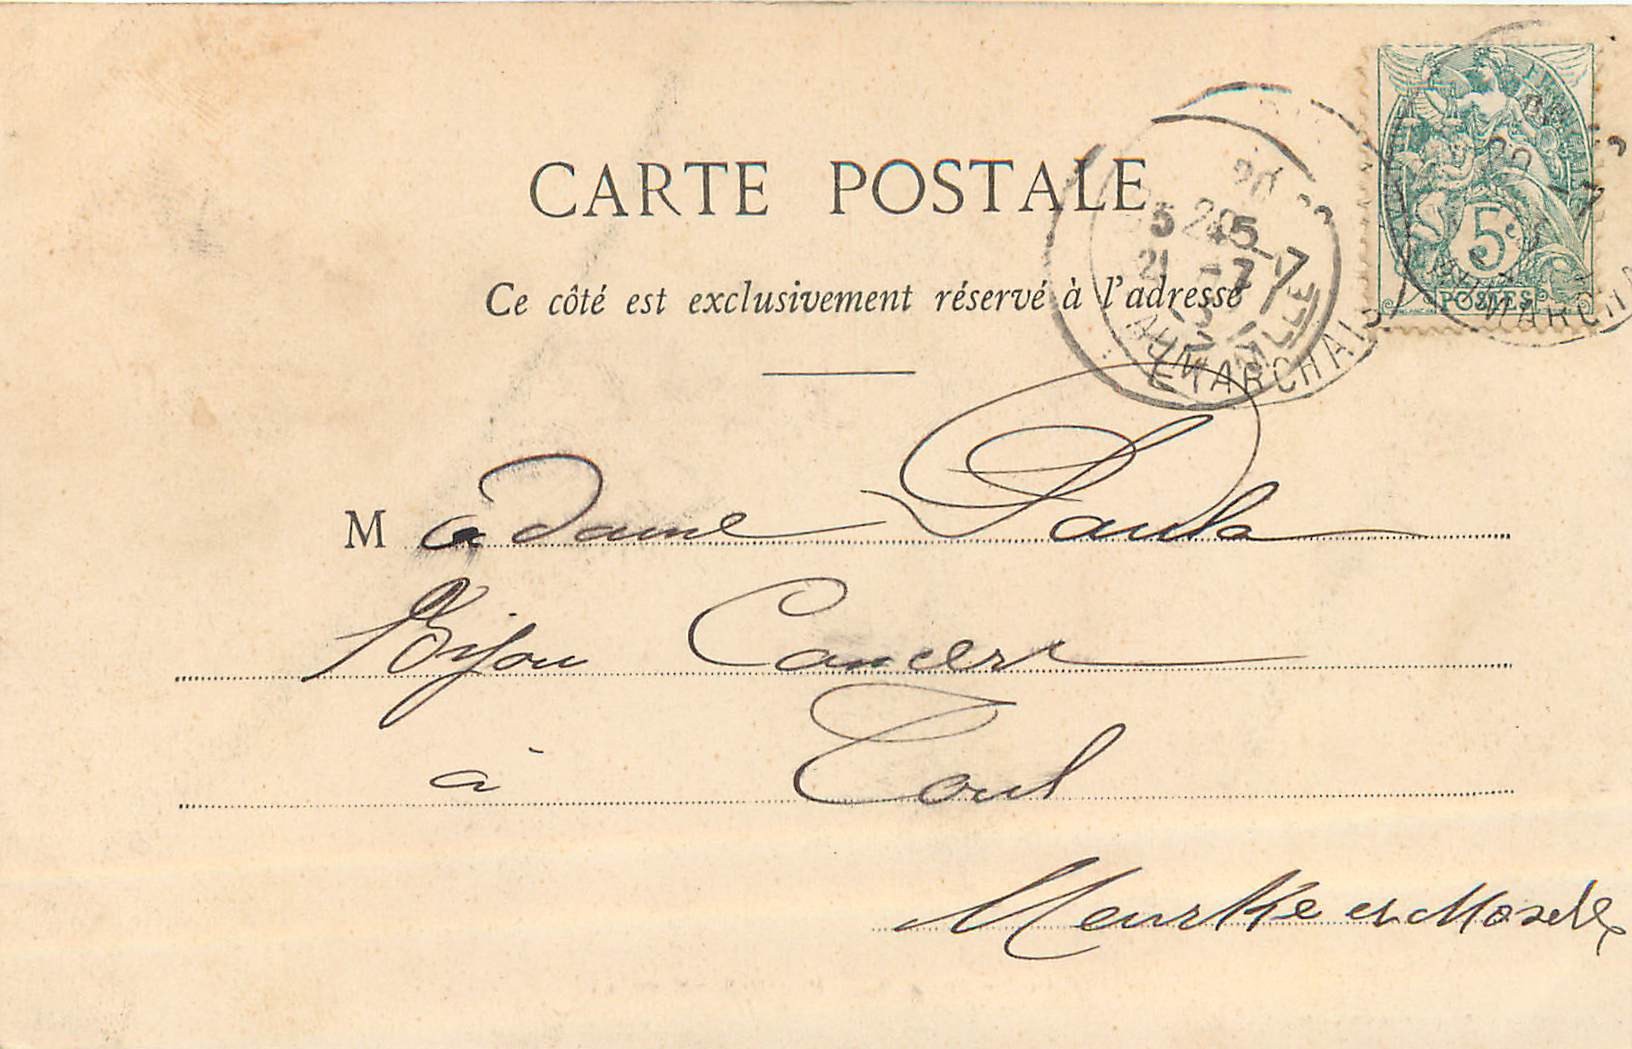 CARTE POSTALE
Ce côté est exclusivement réservé à l'adresse
5
POSTES
5 45
21 -7
MARCHAIS
Madame Paula
Bijou Concert
à Toul
Meurthe et Moselle